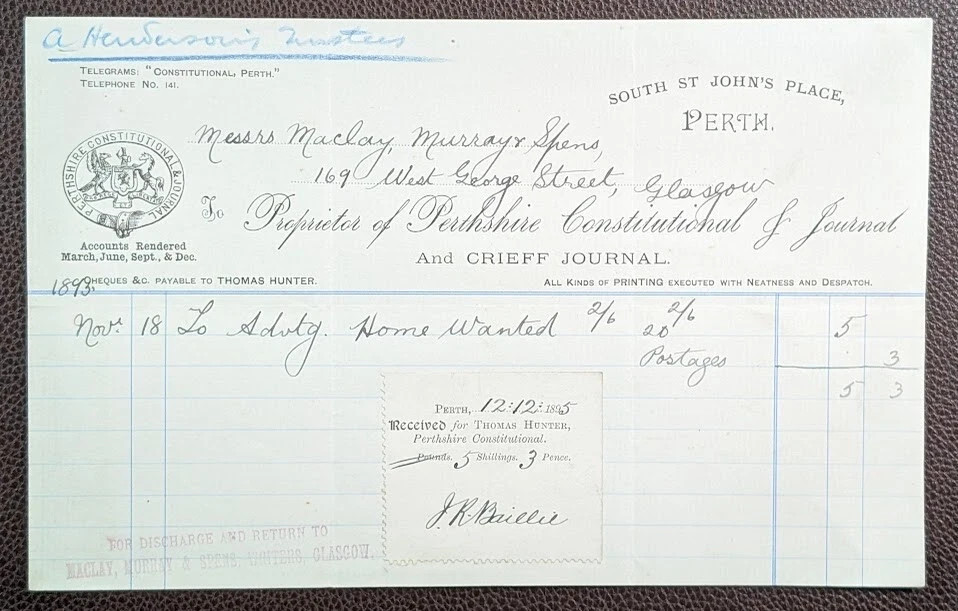 A Henderson's Trustees
TELEGRAMS: "CONSTITUTIONAL, PERTH."
TELEPHONE NO. 141.
SOUTH ST JOHN'S PLACE,
PERTH.
Messrs Maclay, Murray & Spens,
169 West George Street, Glasgow
PERTHSHIRE CONSTITUTIONAL & JOURNAL
To Proprietor of Perthshire Constitutional & Journal
And CRIEFF JOURNAL.
Accounts Rendered
March, June, Sept., & Dec.
CHEQUES &C. PAYABLE TO THOMAS HUNTER.
ALL KINDS OF PRINTING EXECUTED WITH NEATNESS AND DESPATCH.
1893
Novr 18 To Advtg. Home Wanted 2/6 20 2/6 5
Postages 3
5 3
PERTH, 12:12: 1895
Received for THOMAS HUNTER,
Perthshire Constitutional.
Pounds. 5 Shillings. 3 Pence.
J.R. Baillie
FOR DISCHARGE AND RETURN TO
MACLAY, MURRAY & SPENS, WRITERS, GLASGOW.